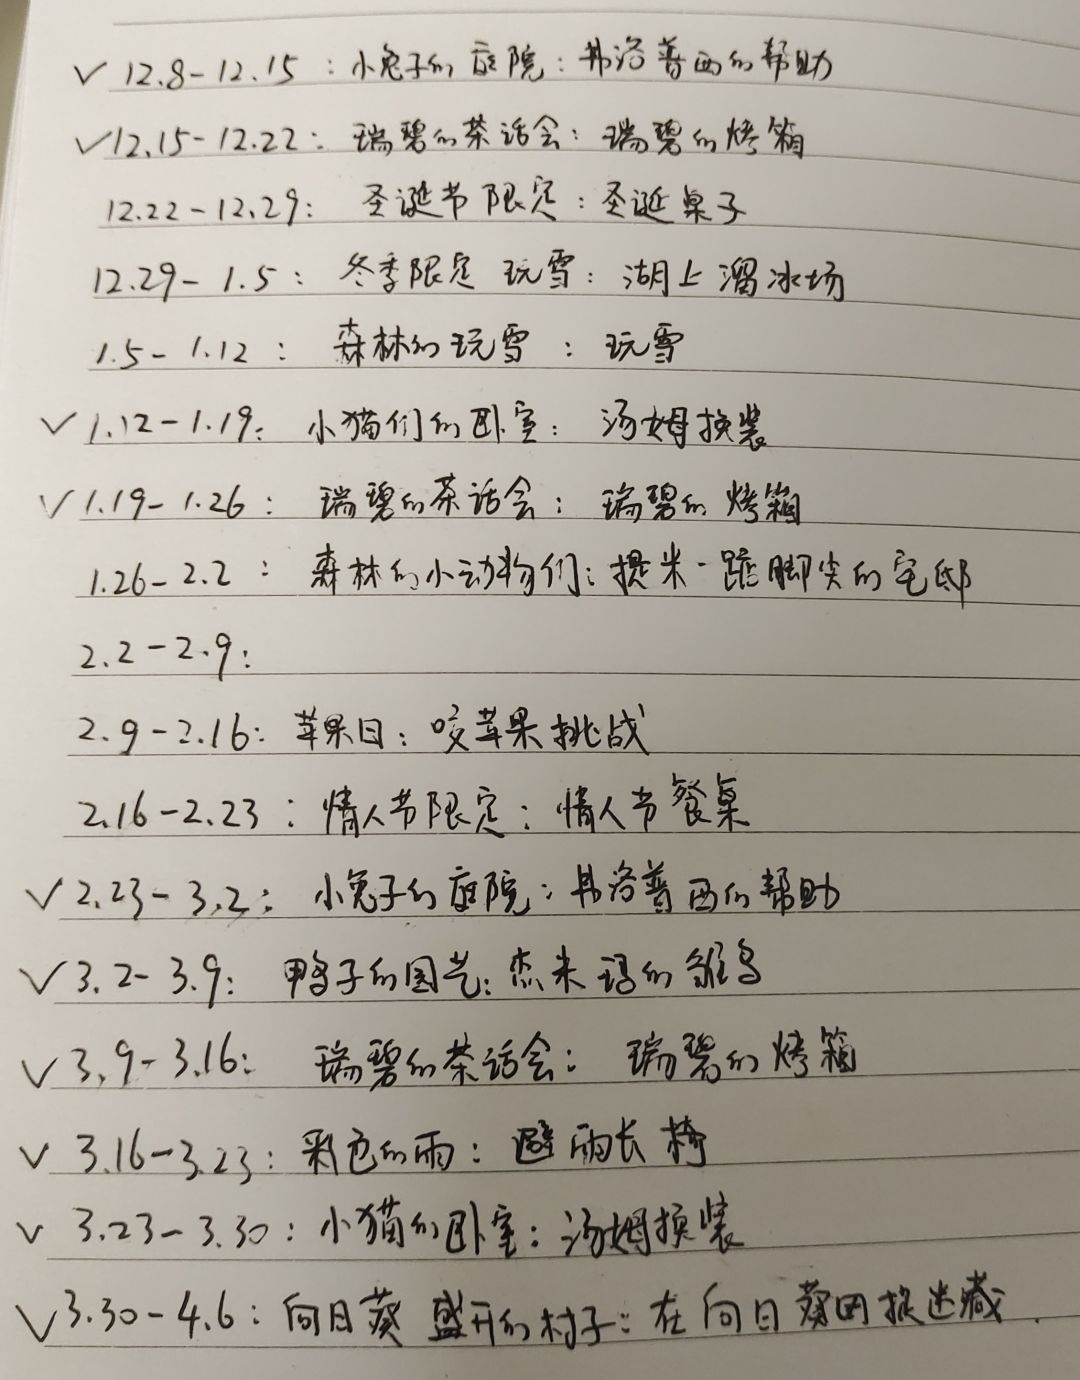 ✓ 12.8-12.15：小兔子的庭院：弗洛普西的帮助
✓ 12.15-12.22：瑞碧的茶话会：瑞碧的烤箱
12.22-12.29：圣诞节限定：圣诞桌子
12.29-1.5：冬季限定 玩雪：湖上溜冰场
1.5-1.12：森林的玩雪：玩雪
✓ 1.12-1.19：小猫们的卧室：汤姆换装
✓ 1.19-1.26：瑞碧的茶话会：瑞碧的烤箱
1.26-2.2：森林的小动物们：提米·踮脚尖的宅邸
2.2-2.9：
2.9-2.16：苹果日：咬苹果挑战
2.16-2.23：情人节限定：情人节餐桌
✓ 2.23-3.2：小兔子的庭院：弗洛普西的帮助
✓ 3.2-3.9：鸭子的园艺：杰米玛的雏鸟
✓ 3.9-3.16：瑞碧的茶话会：瑞碧的烤箱
✓ 3.16-3.23：彩色的雨：避雨长椅
✓ 3.23-3.30：小猫的卧室：汤姆换装
✓ 3.30-4.6：向日葵盛开的村子：在向日葵田捉迷藏.